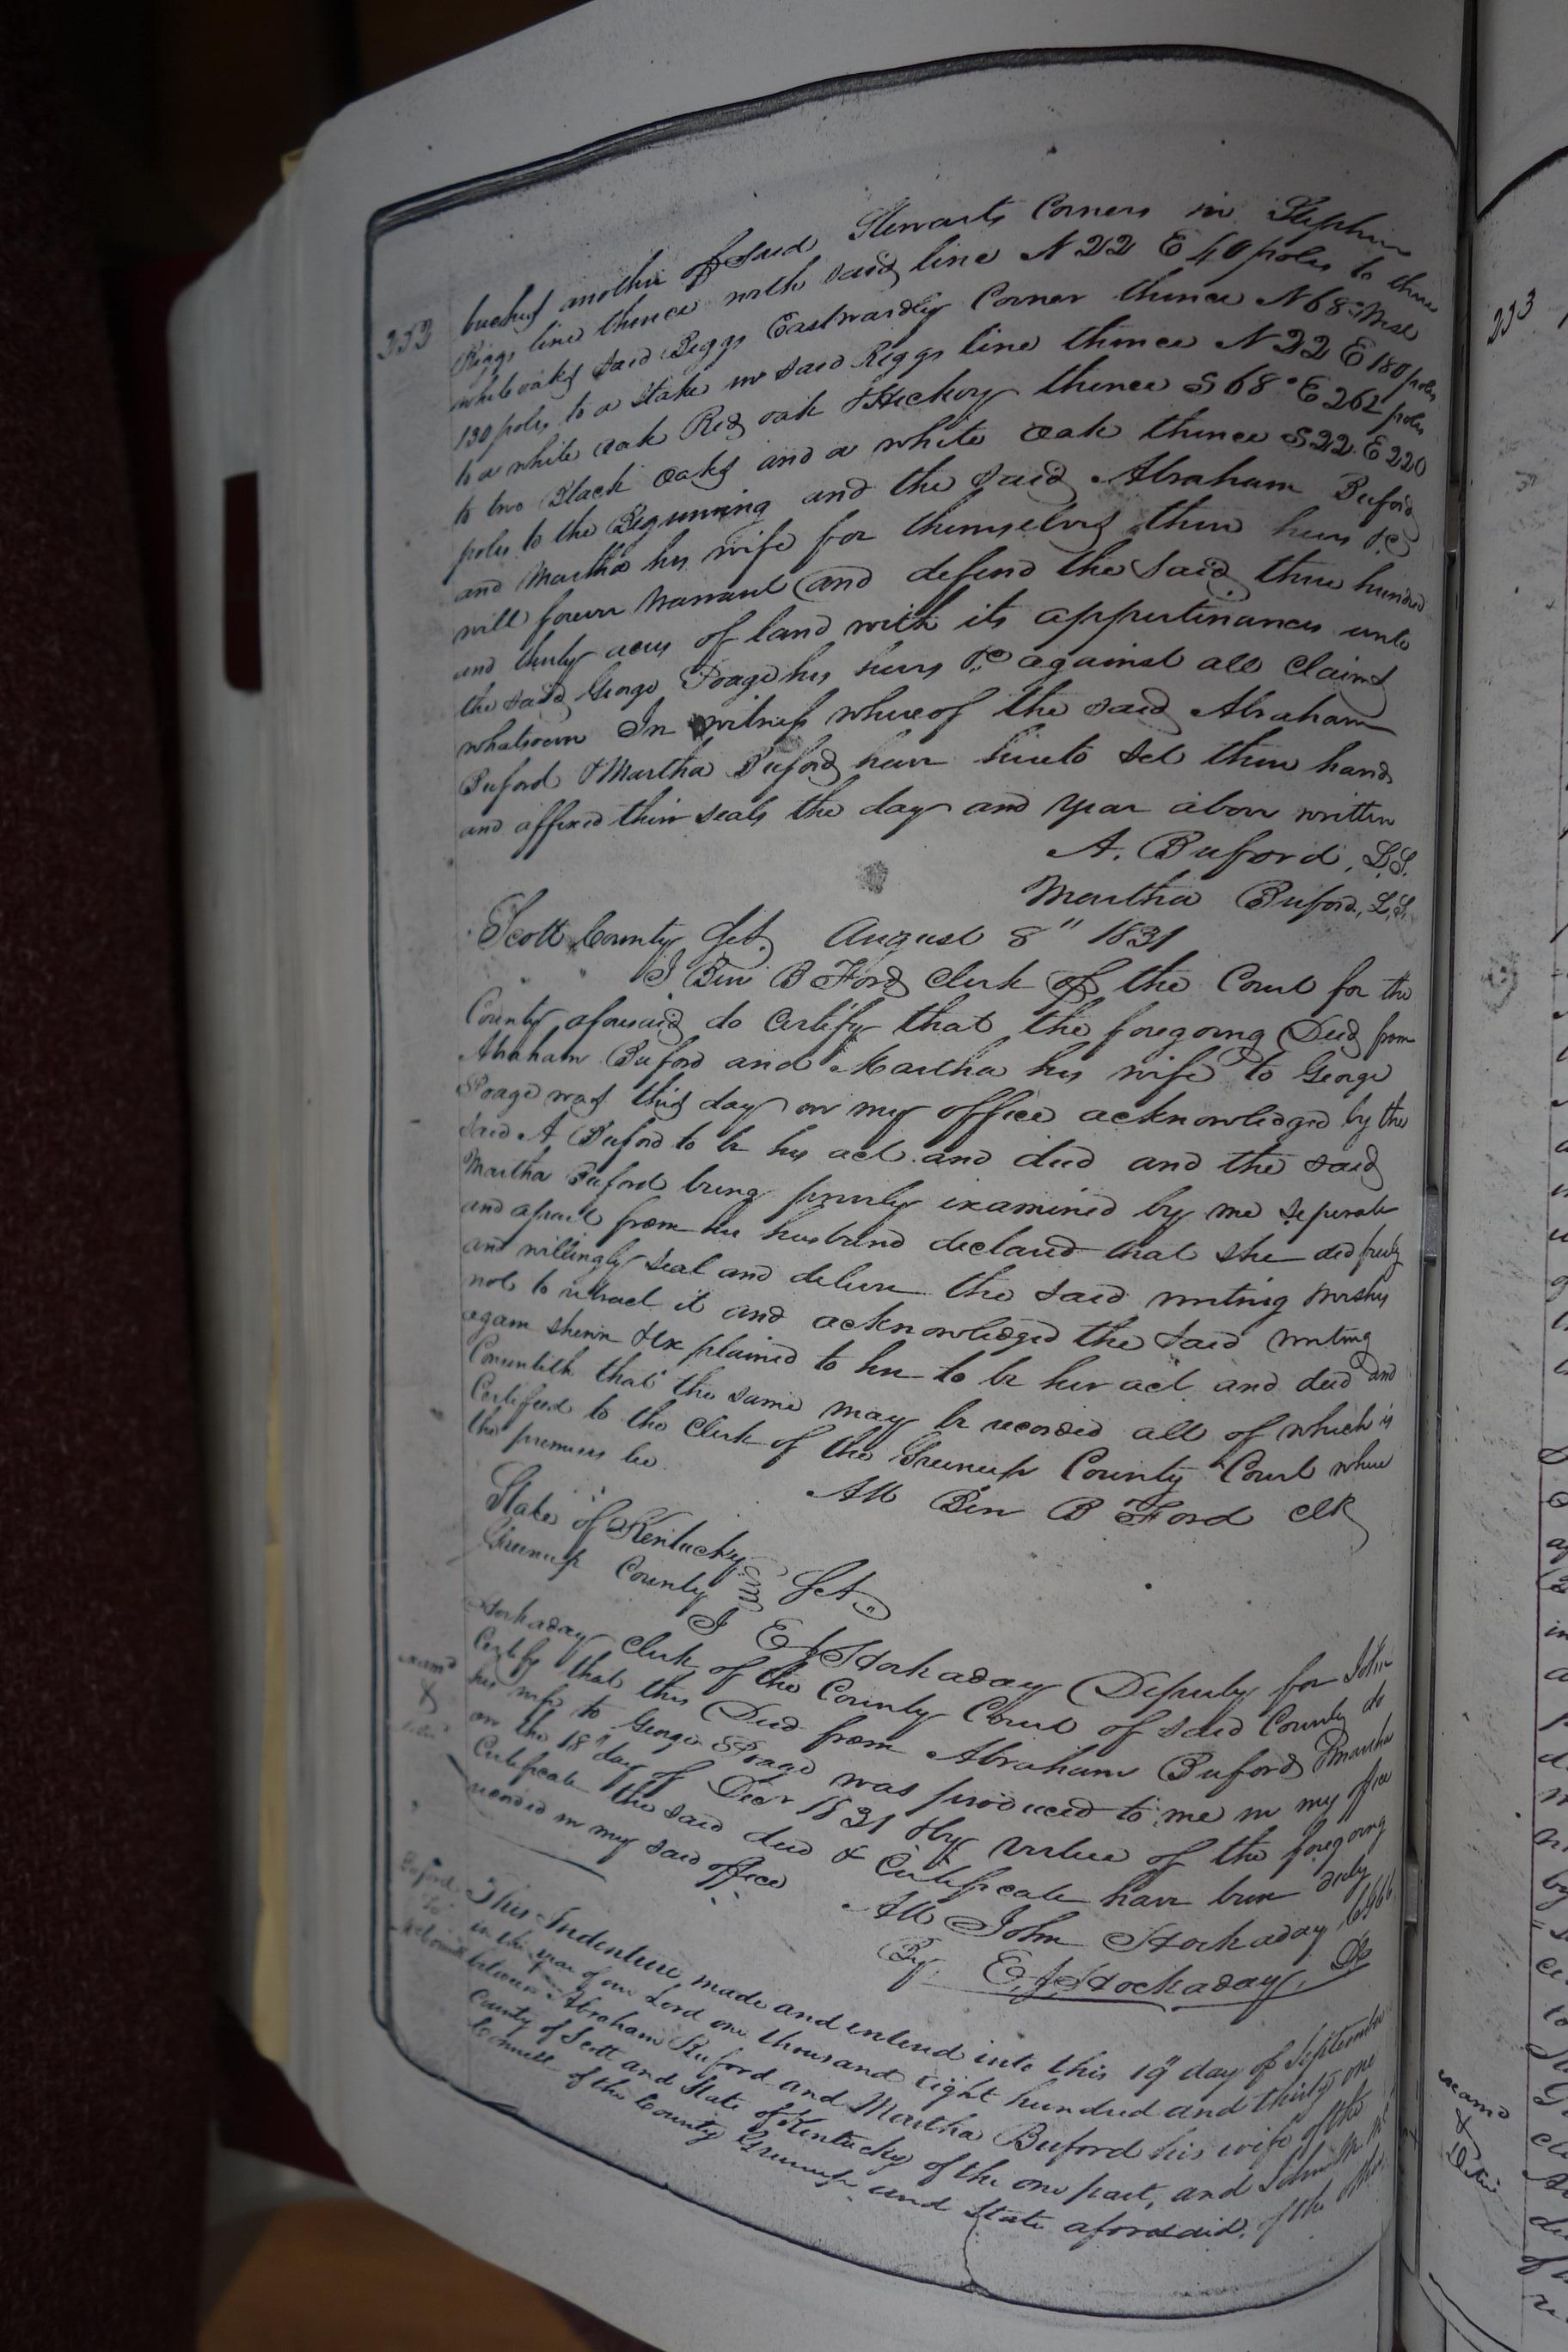 buckeys another of said Stewarts Corners in Stephen
Riggs line thence with said line N 22 E 40 poles to three
white oaks said Riggs Eastwardly Corner thence N 68° West
130 poles to a stake in said Riggs line thence N 22 E 180 poles
to a white oak Red oak & Hickory thence S 68° E 262 poles
to two Black oaks and a white oak thence S 22. E 220
poles to the Beginning and the said Abraham Buford
and Martha his wife for themselves their heirs &c
will forever warrant and defend the said three hundred
and thirty acres of land with its appurtinances unto
the said George Poage his heirs &c against all claims
whatsoever In witness whereof the said Abraham
Buford & Martha Buford have hereto set their hands
and affixed their seals the day and year above written
A. Buford, L.S.
Martha Buford, L.S.
Scott County Sct. August 8" 1831
I Ben B Ford Clerk of the Court for the
County aforesaid do certify that the foregoing Deed from
Abraham Buford and Martha his wife to George
Poage was this day in my office acknowledged by the
said A Buford to be his act and deed and the said
Martha Buford being privily examined by me seperate
and apart from her husband declared that she did freely
and willingly seal and deliver the said writing & wishes
not to retract it and acknowledged the said writing
again shewn & explained to her to be her act and deed and
Consenteth that the same may be recorded all of which is
Certified to the Clerk of the Greenup County Court where
the premises lie.
Att Ben B Ford Clk
State of Kentucky
Greenup County Sct.
I E J Hockaday Deputy for John
Hockaday Clerk of the County Court of said County do
Certify that this Deed from Abraham Buford & Martha
his wife to George Poage was produced to me in my office
on the 18" day of Decr 1831 & by virtue of the foregoing
Certificate the said deed & Certificate have been duly
recorded in my said office
Att John Hockaday
By E. J. Hockaday, D
exam'd
&
Buford
To
This Indenture made and entered into this 19" day of September
in the year of our Lord one thousand eight hundred and thirty one
between Abraham Buford and Martha Buford his wife of the
County of Scott and State of Kentucky of the one part, and John
Connell of the County Greenup and State aforesaid, of the other
233
examd
&